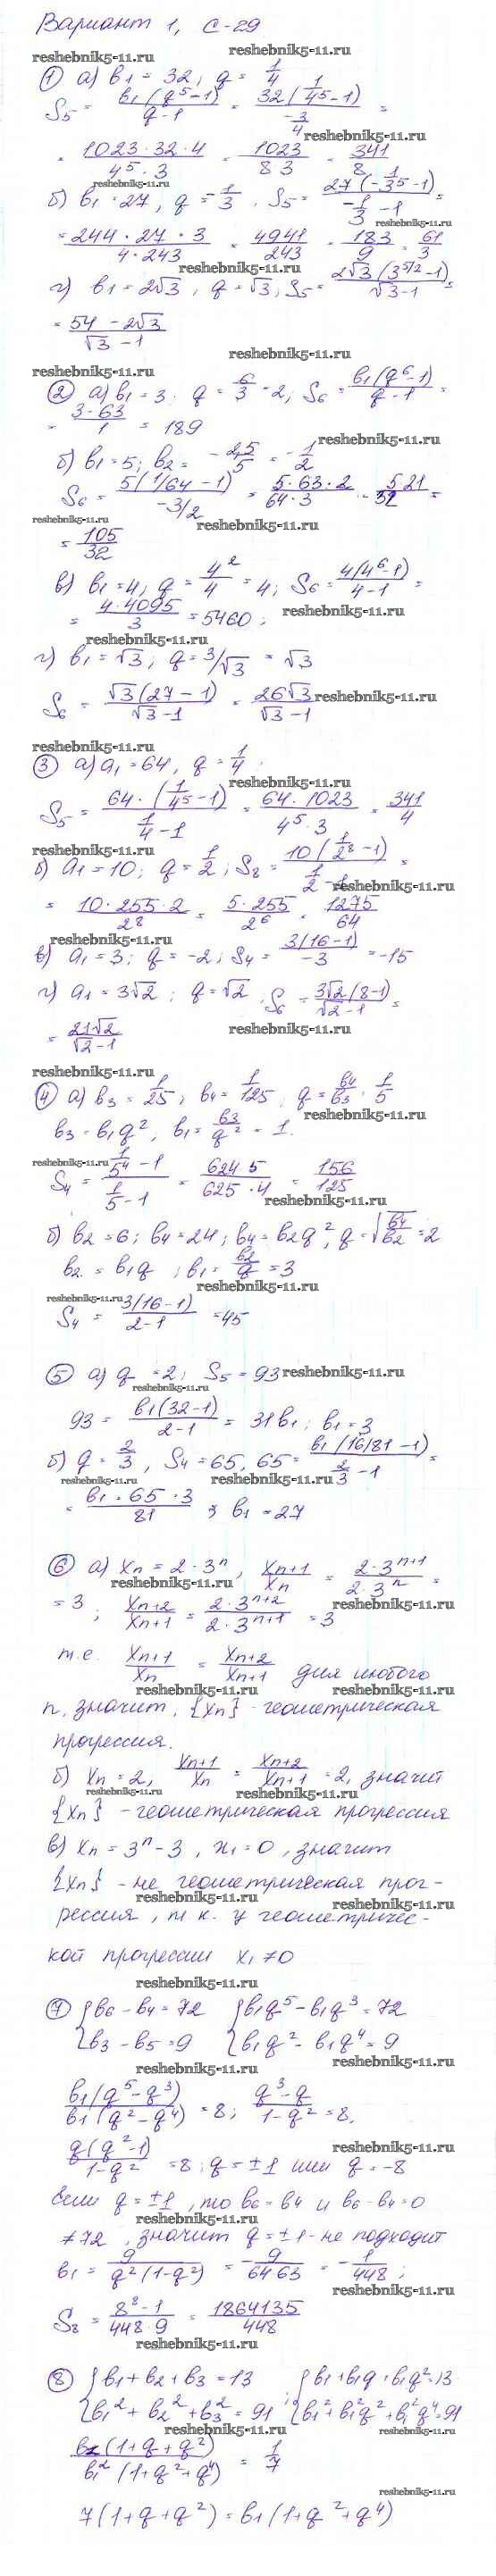 Вариант 1, С-29
reshebnik5-11.ru reshebnik5-11.ru
① а) b₁ = 32, q = 1/4
S₅ = b₁(q⁵-1)/(q-1) = 32(1/4⁵-1)/(-3/4) =
reshebnik5-11.ru
= 1023·32·4/(4⁵·3) = 1023/(8 3) = 341/8
reshebnik5-11.ru
б) b₁ = 27, q = -1/3, S₅ = 27(-1/3⁵-1)/(-1/3-1) =
reshebnik5-11.ru
= 244·27·3/(4·243) = 4941/243 = 183/9 = 61/3
reshebnik5-11.ru
г) b₁ = 2√3, q = √3, S₅ = 2√3(3^(5/2)-1)/(√3-1) =
= (54-2√3)/(√3-1)
reshebnik5-11.ru
reshebnik5-11.ru
② а) b₁ = 3, q = 6/3 = 2; S₆ = b₁(q⁶-1)/(q-1) =
= 3·63/1 = 189
reshebnik5-11.ru
б) b₁ = 5; b₂ = -2,5/5 = -1/2
S₆ = 5(1/64-1)/(-3/2) = 5·63·2/(64·3) = 5 21/32 =
reshebnik5-11.ru reshebnik5-11.ru
= 105/32
в) b₁ = 4; q = 4²/4 = 4; S₆ = 4(4⁶-1)/(4-1) =
= 4·4095/3 = 5460;
reshebnik5-11.ru
reshebnik5-11.ru
г) b₁ = √3, q = 3/√3 = √3
S₆ = √3(27-1)/(√3-1) = 26√3/(√3-1)
reshebnik5-11.ru
reshebnik5-11.ru
③ а) a₁ = 64, q = 1/4
S₅ = 64·(1/4⁵-1)/(1/4-1) = 64·1023/(4⁵·3) = 341/4
reshebnik5-11.ru
б) a₁ = 10; q = 1/2; S₈ = 10(1/2⁸-1)/(1/2-1) =
reshebnik5-11.ru
= 10·255·2/2⁸ = 5·255/2⁶ = 1275/64
reshebnik5-11.ru
в) a₁ = 3; q = -2; S₄ = 3(16-1)/(-3) = -15
г) a₁ = 3√2; q = √2, S₆ = 3√2(8-1)/(√2-1) =
= 21√2/(√2-1)
reshebnik5-11.ru
reshebnik5-11.ru
④ а) b₃ = 1/25; b₄ = 1/125, q = b₄/b₃ = 1/5
reshebnik5-11.ru
b₃ = b₁q², b₁ = b₃/q² = 1.
reshebnik5-11.ru
S₄ = (1/5⁴-1)/(1/5-1) = 624 5/(625·4) = 156/125
reshebnik5-11.ru
б) b₂ = 6; b₄ = 24; b₄ = b₂q², q = √(b₄/b₂) = 2
b₂ = b₁q; b₁ = b₂/q = 3
reshebnik5-11.ru
reshebnik5-11.ru
S₄ = 3(16-1)/(2-1) = 45
⑤ а) q = 2; S₅ = 93
reshebnik5-11.ru
reshebnik5-11.ru
93 = b₁(32-1)/(2-1) = 31b₁; b₁ = 3
б) q = 2/3, S₄ = 65, 65 = b₁(16/81-1)/(2/3-1) =
reshebnik5-11.ru reshebnik5-11.ru
= b₁·65·3/81 ; b₁ = 27
⑥ а) xn = 2·3ⁿ, xn+1/xn = 2·3ⁿ⁺¹/(2·3ⁿ) =
reshebnik5-11.ru
= 3; xn+2/xn+1 = 2·3ⁿ⁺²/(2·3ⁿ⁺¹) = 3
reshebnik5-11.ru
т.е. xn+1/xn = xn+2/xn+1 для любого
reshebnik5-11.ru reshebnik5-11.ru
n, значит, {xn} - геометрическая
прогрессия.
б) xn = 2, xn+1/xn = xn+2/xn+1 = 2, значит
reshebnik5-11.ru reshebnik5-11.ru
{xn} - геометрическая прогрессия
в) xn = 3ⁿ-3, x₁ = 0, значит
{xn} - не геометрическая прог-
reshebnik5-11.ru reshebnik5-11.ru
рессия, т к. у геометричес-
кой прогрессии x₁ ≠ 0
reshebnik5-11.ru
⑦ {b₆-b₄ = 72 {b₁q⁵-b₁q³ = 72
{b₃-b₅ = 9 {b₁q²-b₁q⁴ = 9
reshebnik5-11.ru
reshebnik5-11.ru
b₁(q⁵-q³)/(b₁(q²-q⁴)) = 8; (q³-q)/(1-q²) = 8,
q(q²-1)/(1-q²) = 8; q = ±1 или q = -8
reshebnik5-11.ru
Если q = ±1, то b₆ = b₄ и b₆-b₄ = 0
reshebnik5-11.ru
≠ 72, значит q = ±1 - не подходит
b₁ = 9/(q²(1-q²)) = -9/(64 63) = -1/448;
reshebnik5-11.ru
S₈ = (8⁸-1)/(448·9) = 1864135/448
reshebnik5-11.ru
⑧ {b₁+b₂+b₃ = 13 {b₁+b₁q+b₁q² = 13
{b₁²+b₂²+b₃² = 91; {b₁²+b₁²q²+b₁²q⁴ = 91
reshebnik5-11.ru reshebnik5-11.ru
b₁(1+q+q²)/(b₁²(1+q²+q⁴)) = 1/7
reshebnik5-11.ru
7(1+q+q²) = b₁(1+q²+q⁴)